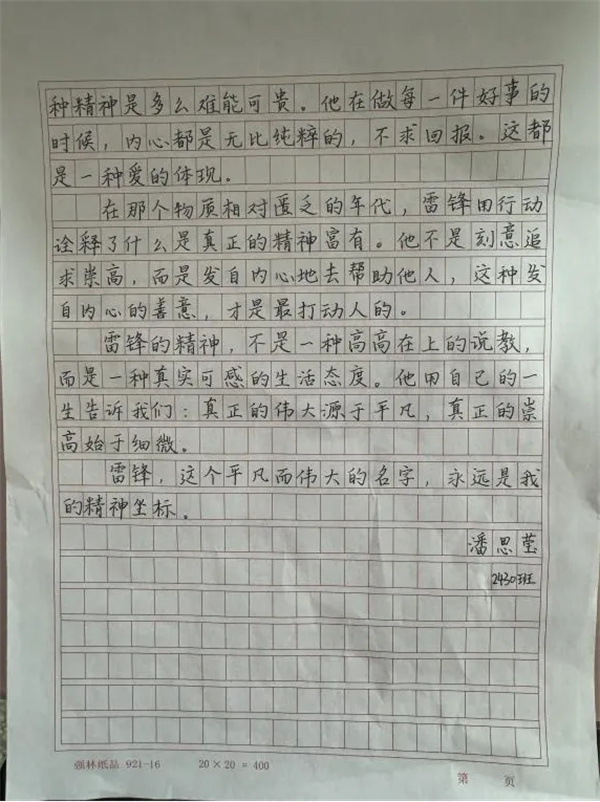 种精神是多么难能可贵。他在做每一件好事的
时候，内心都是无比纯粹的，不求回报。这都
是一种爱的体现。
在那个物质相对匮乏的年代，雷锋用行动
诠释了什么是真正的精神富有。他不是刻意追
求崇高，而是发自内心地去帮助他人，这种发
自内心的善意，才是最打动人的。
雷锋的精神，不是一种高高在上的说教，
而是一种真实可感的生活态度。他用自己的一
生告诉我们：真正的伟大源于平凡，真正的崇
高始于细微。
雷锋，这个平凡而伟大的名字，永远是我
的精神坐标。
潘思莹
2430班
强林纸品 921-16 20×20=400
第 页